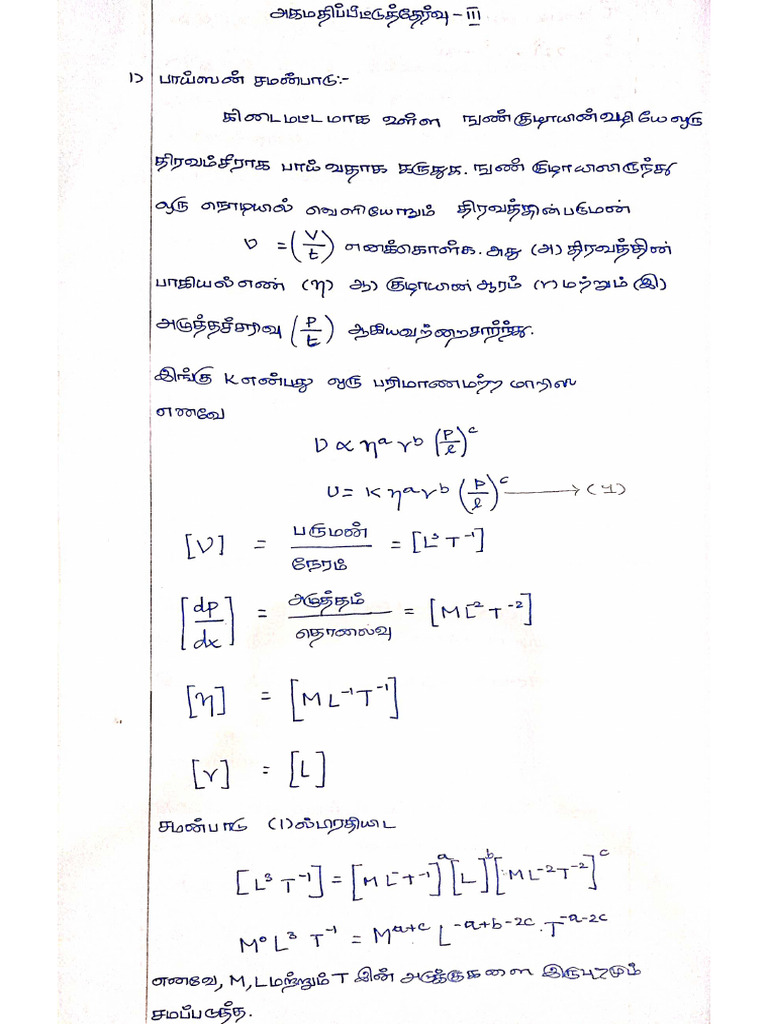 அகமதிப்பீட்டுத்தேர்வு - III
1) பாய்ஸன் சமன்பாடு:-
கிடைமட்டமாக உள்ள நுண்குழாயின்வழியே ஒரு
திரவம்சீராக பாய்வதாக கருதுக. நுண் குழாயிலிருந்து
ஒரு நொடியில் வெளியேறும் திரவத்தின்பருமன்
V = (V/t) எனக்கொள்க. அது (அ) திரவத்தின்
பாகியல் எண் (η) ஆ) குழாயின் ஆரம் (r) மற்றும் (இ)
அழுத்தச்சரிவு (P/t) ஆகியவற்றைசார்ந்து.
இங்கு K என்பது ஒரு பரிமாணமற்ற மாறிலி
எனவே
V ∝ η^a r^b (P/l)^c
υ = K η^a r^b (P/l)^c ⟶ (1)
[V] = பருமன்/நேரம் = [L³ T⁻¹]
[dp/dx] = அழுத்தம்/தொலைவு = [M L⁻² T⁻²]
[η] = [M L⁻¹ T⁻¹]
[r] = [L]
சமன்பாடு (1)ல்பிரதியிட
[L³ T⁻¹] = [M L⁻ T⁻¹]^a [L]^b [M L⁻² T⁻²]^c
M⁰ L³ T⁻¹ = M^(a+c) L^(-a+b-2c) . T^(-a-2c)
எனவே, M, L மற்றும் T இன் அடுக்குகளை இருபுறமும்
சமப்படுத்த.